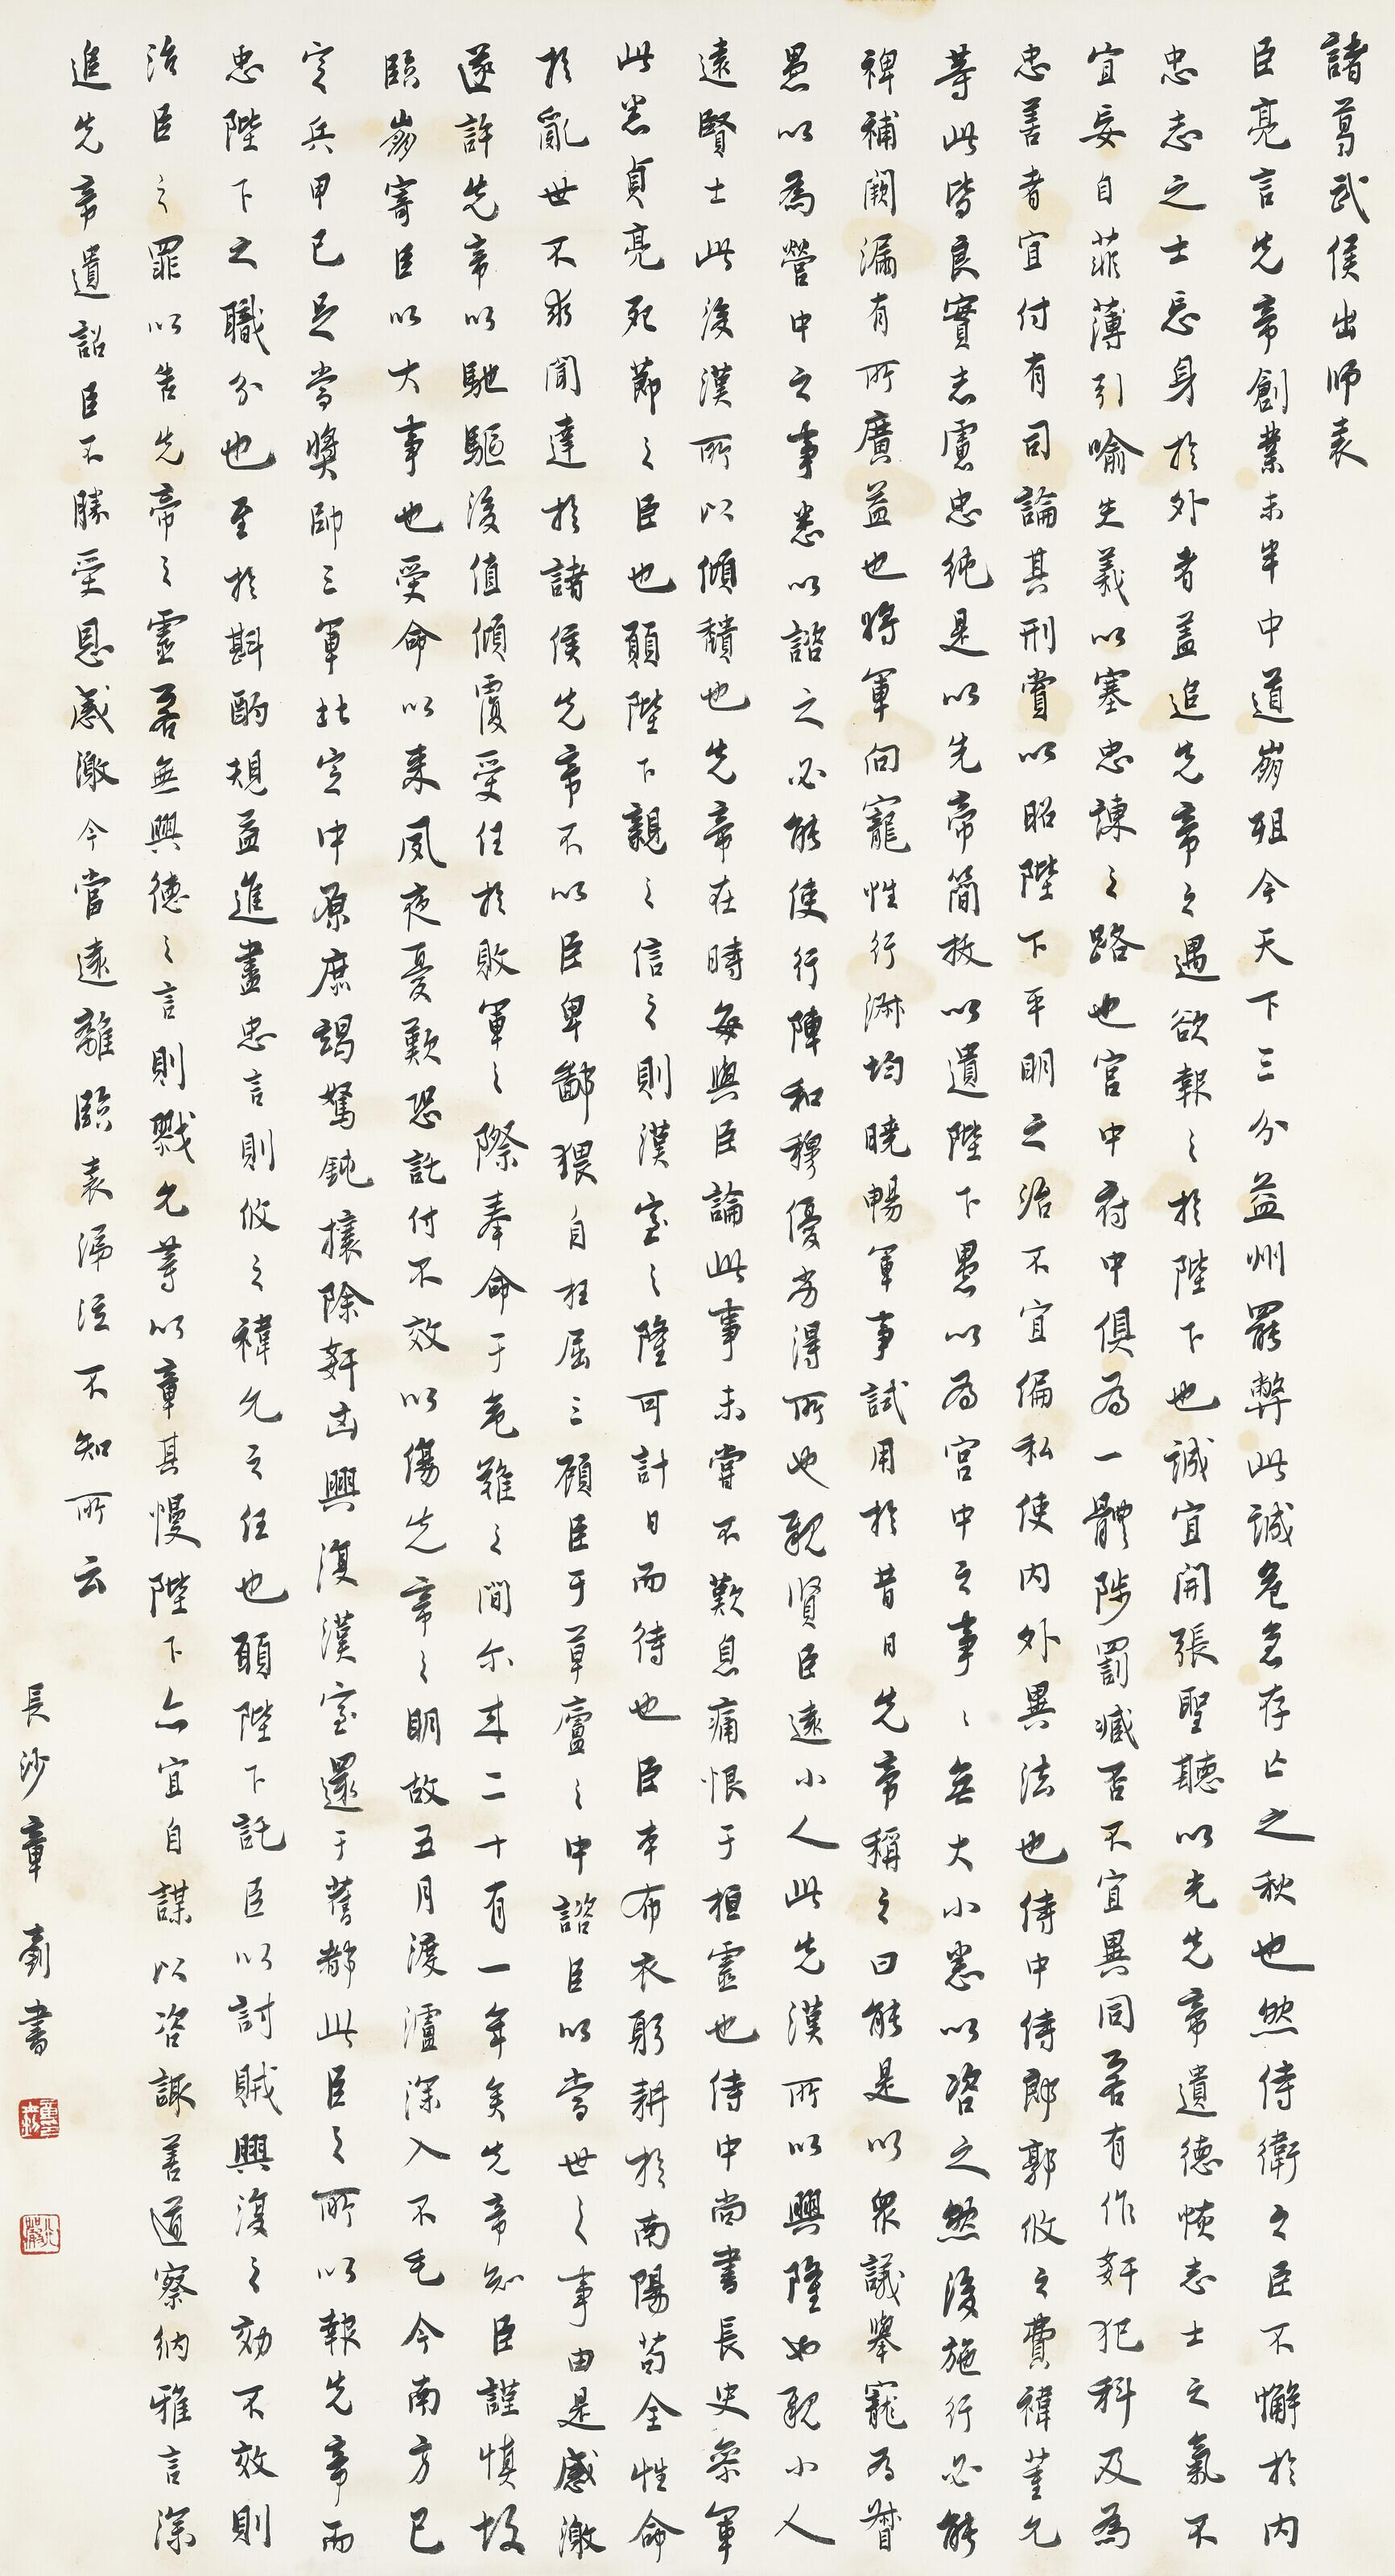 諸葛武侯出師表
臣亮言先帝創業未半中道崩殂今天下三分益州罷弊此誠危急存亡之秋也然侍衛之臣不懈於內
忠志之士忘身於外者蓋追先帝之遇欲報之於陛下也誠宜開張聖聽以光先帝遺德恢志士之氣不
宜妄自菲薄引喻失義以塞忠諫之路也宮中府中俱為一體陟罰臧否不宜異同若有作奸犯科及為
忠善者宜付有司論其刑賞以昭陛下平明之治不宜偏私使內外異法也侍中侍郎郭攸之費禕董允
等此皆良實志慮忠純是以先帝簡拔以遺陛下愚以為宮中之事〻無大小悉以咨之然後施行必能
裨補闕漏有所廣益也將軍向寵性行淑均曉暢軍事試用於昔日先帝稱之曰能是以眾議舉寵為督
愚以為營中之事悉以諮之必能使行陣和穆優劣得所也親賢臣遠小人此先漢所以興隆也親小人
遠賢士此後漢所以傾穨也先帝在時每與臣論此事未嘗不歎息痛恨于桓靈也侍中尚書長史參軍
此悉貞亮死節之臣也願陛下親之信之則漢室之隆可計日而待也臣本布衣躬耕於南陽苟全性命
於亂世不求聞達於諸侯先帝不以臣卑鄙猥自枉屈三顧臣于草廬之中諮臣以當世之事由是感激
遂許先帝以馳驅後值傾覆受任於敗軍之際奉命于危難之間尔来二十有一年矣先帝知臣謹慎故
臨崩寄臣以大事也受命以來夙夜憂歎恐託付不效以傷先帝之明故五月渡瀘深入不毛今南方已
定兵甲已足當獎帥三軍北定中原庶竭駑鈍攘除奸凶興復漢室還于舊都此臣之所以報先帝而
忠陛下之職分也至於斟酌規益進盡忠言則攸之禕允之任也願陛下託臣以討賊興復之効不效則
治臣之罪以告先帝之靈若無興德之言則戮允等以章其慢陛下亦宜自謀以咨諏善道察納雅言深
追先帝遺詔臣不勝受恩感激今當遠離臨表涕泣不知所云
長沙章書